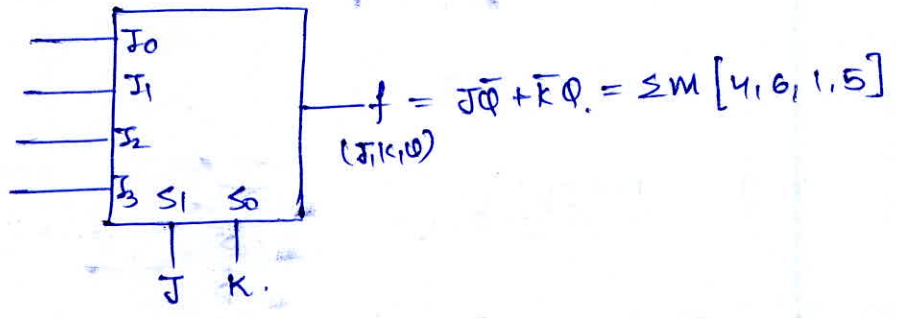 I0
I1
I2
I3 S1 S0
f = JQ̄ + K̄Q. = Σm [4, 6, 1, 5]
(J, K, Q)
J K.